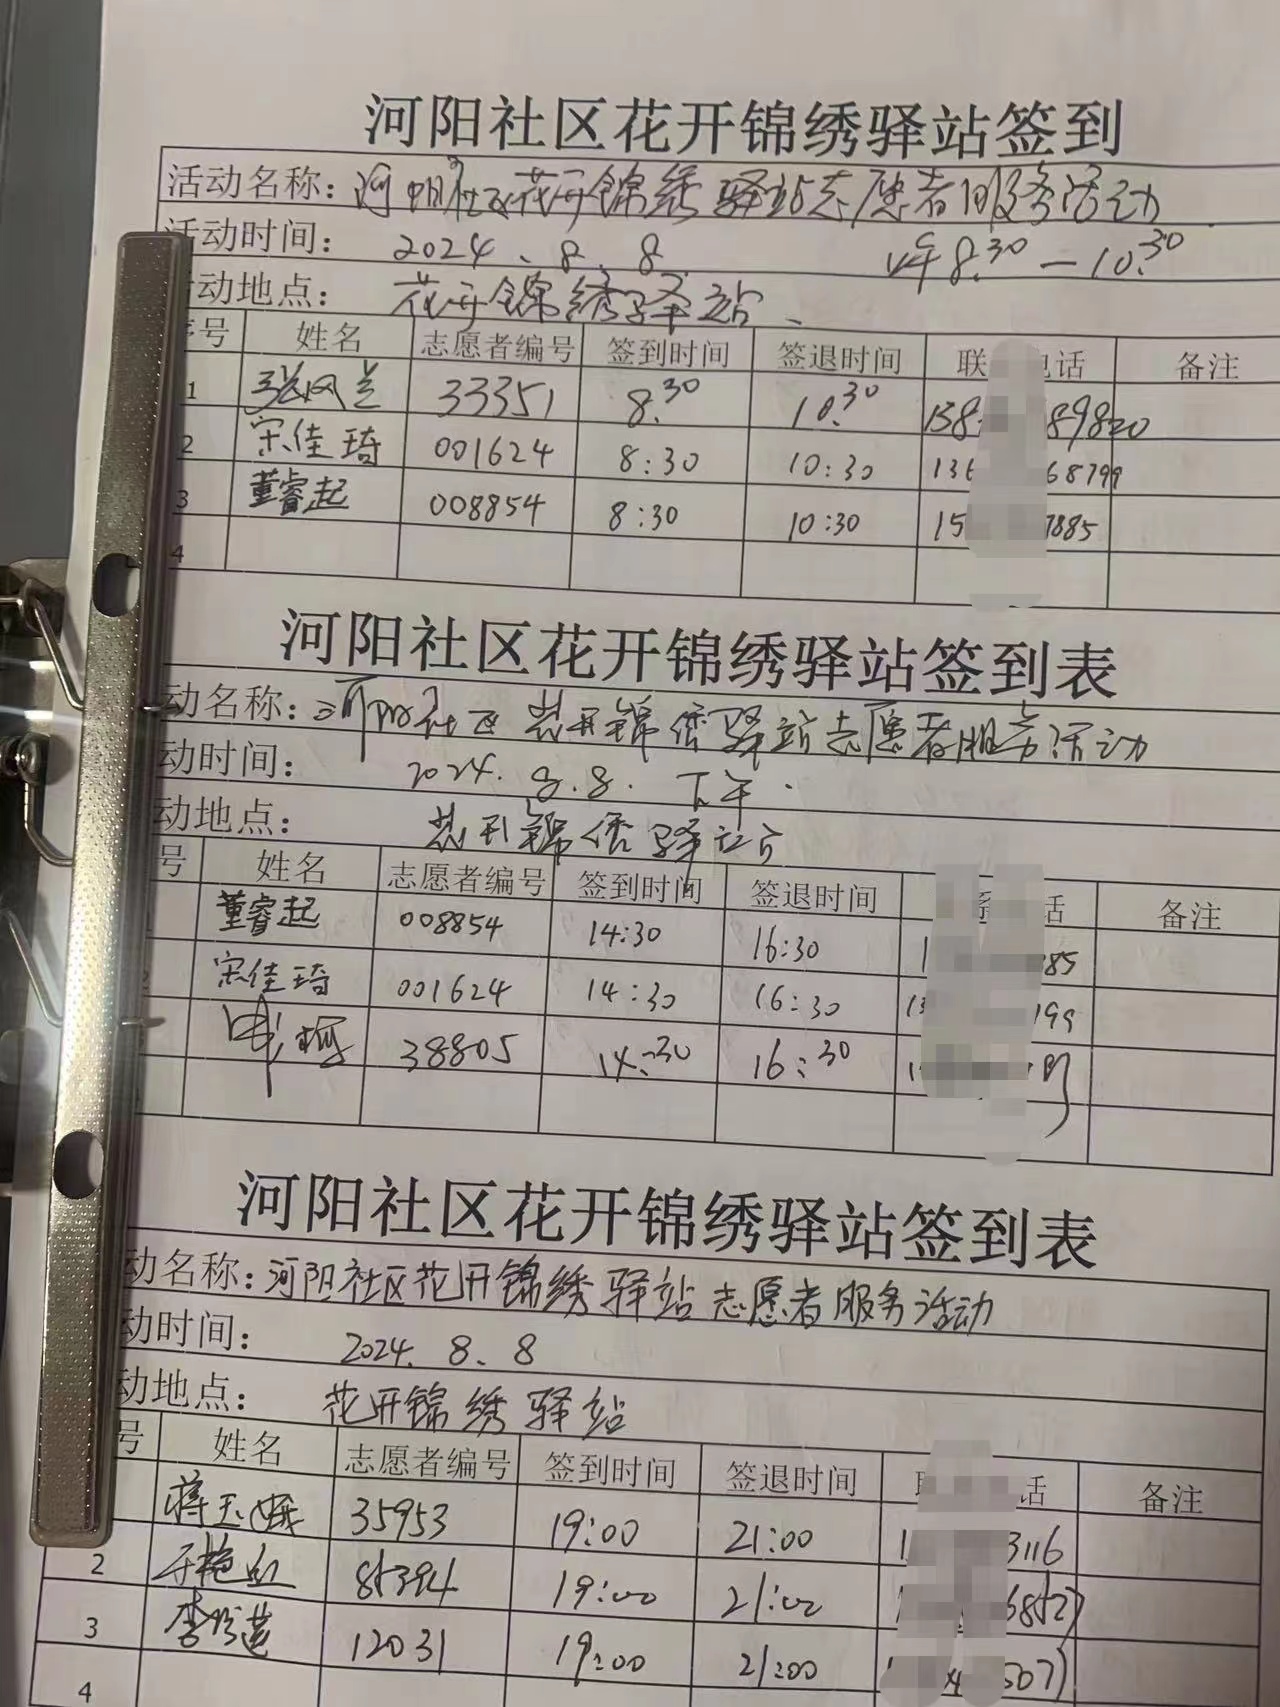 河阳社区花开锦绣驿站签到
活动名称：河阳社区花开锦绣驿站志愿者服务活动
活动时间： 2024.8.8 上午8:30—10:30
活动地点： 花开锦绣驿站
序号 姓名 志愿者编号 签到时间 签退时间 联 电话 备注
1 张凤兰 33351 8:30 10:30 138 89820
2 宋佳琦 001624 8:30 10:30 136 68799
3 董睿起 008854 8:30 10:30 15 7885
4
河阳社区花开锦绣驿站签到表
动名称：河阳社区花开锦绣驿站志愿者服务活动
动时间： 2024.8.8. 下午.
动地点： 花开锦绣驿站
号 姓名 志愿者编号 签到时间 签退时间 话 备注
董睿起 008854 14:30 16:30 1 885
宋佳琦 001624 14:30 16:30 13 799
38805 14:30 16:30
河阳社区花开锦绣驿站签到表
动名称：河阳社区花开锦绣驿站志愿者服务活动
动时间： 2024.8.8
动地点： 花开锦绣驿站
号 姓名 志愿者编号 签到时间 签退时间 话 备注
蒋玉 35953 19:00 21:00 1 3116
2 于艳红 85394 19:00 21:00 6852
3 李 莲 12031 19:00 21:00 507
4